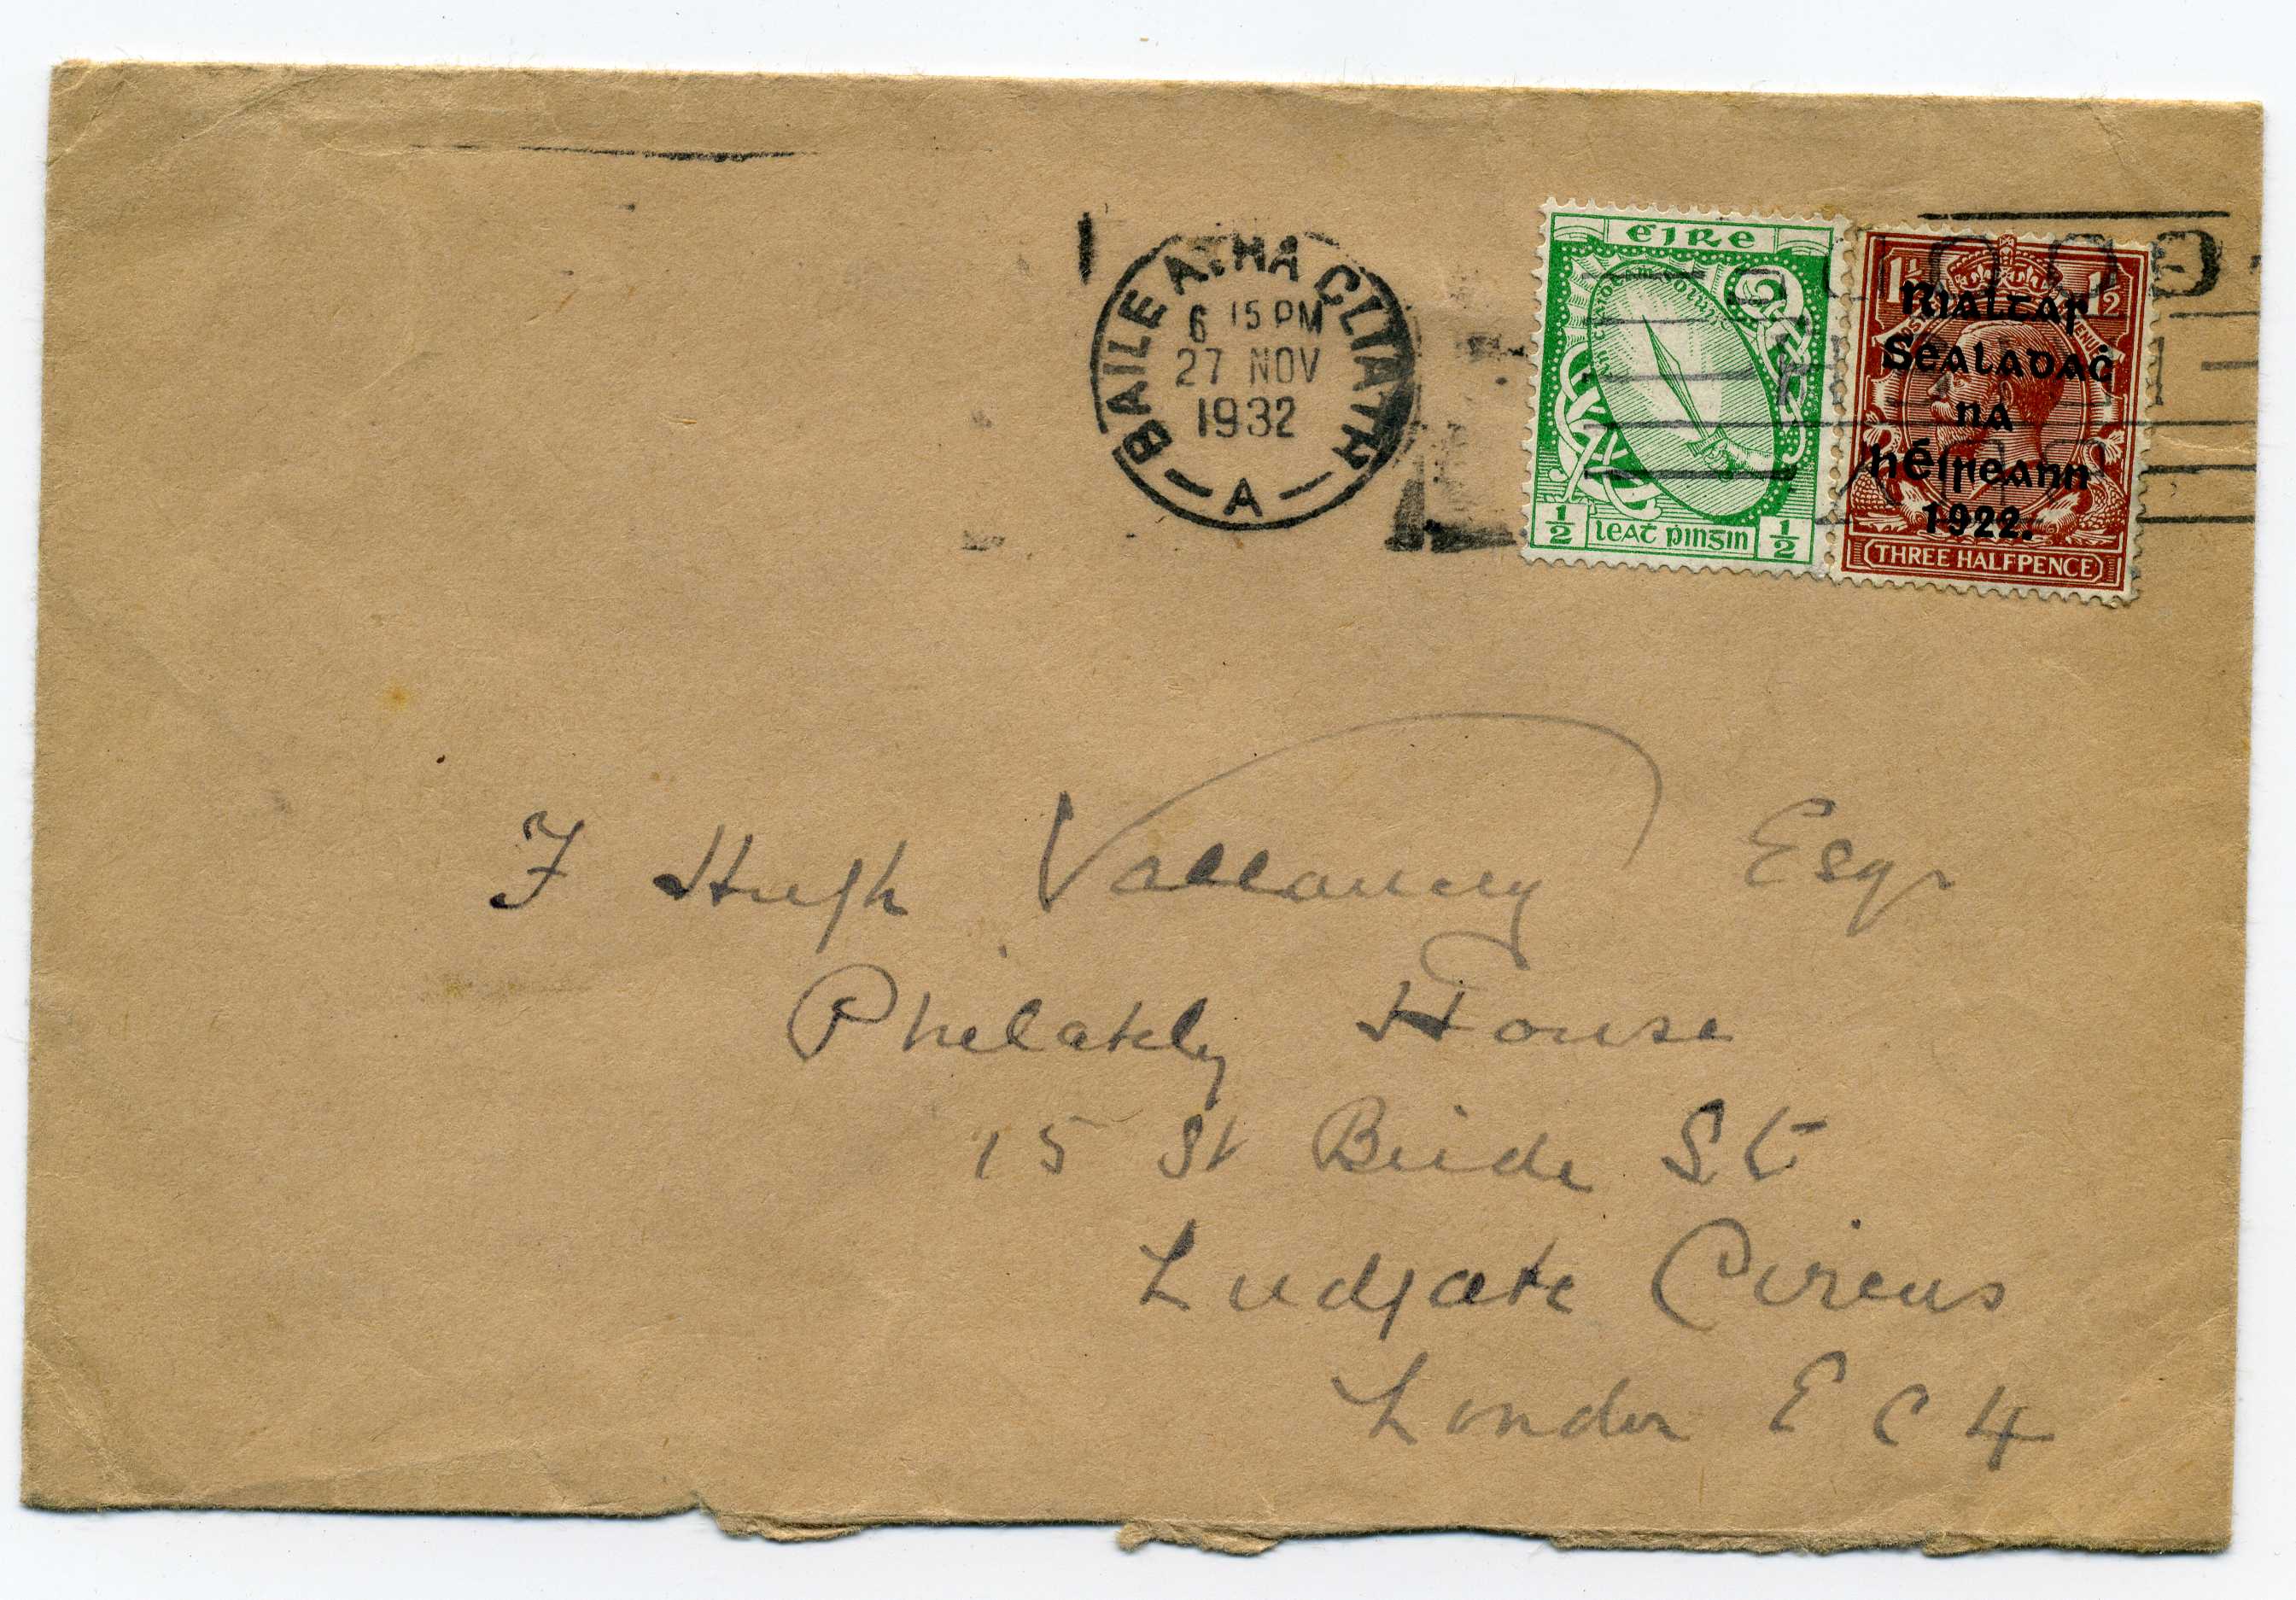 BAILE ATHA CLIATH
6 15 PM
27 NOV
1932
A
eire
½ leat pingin ½
1½ 1½
Rialtas
Sealadaċ
na
hÉireann
1922.
THREE HALFPENCE
F Hugh Vallancey Esqr
Philately House
15 St Bride St
Ludgate Circus
London E C 4